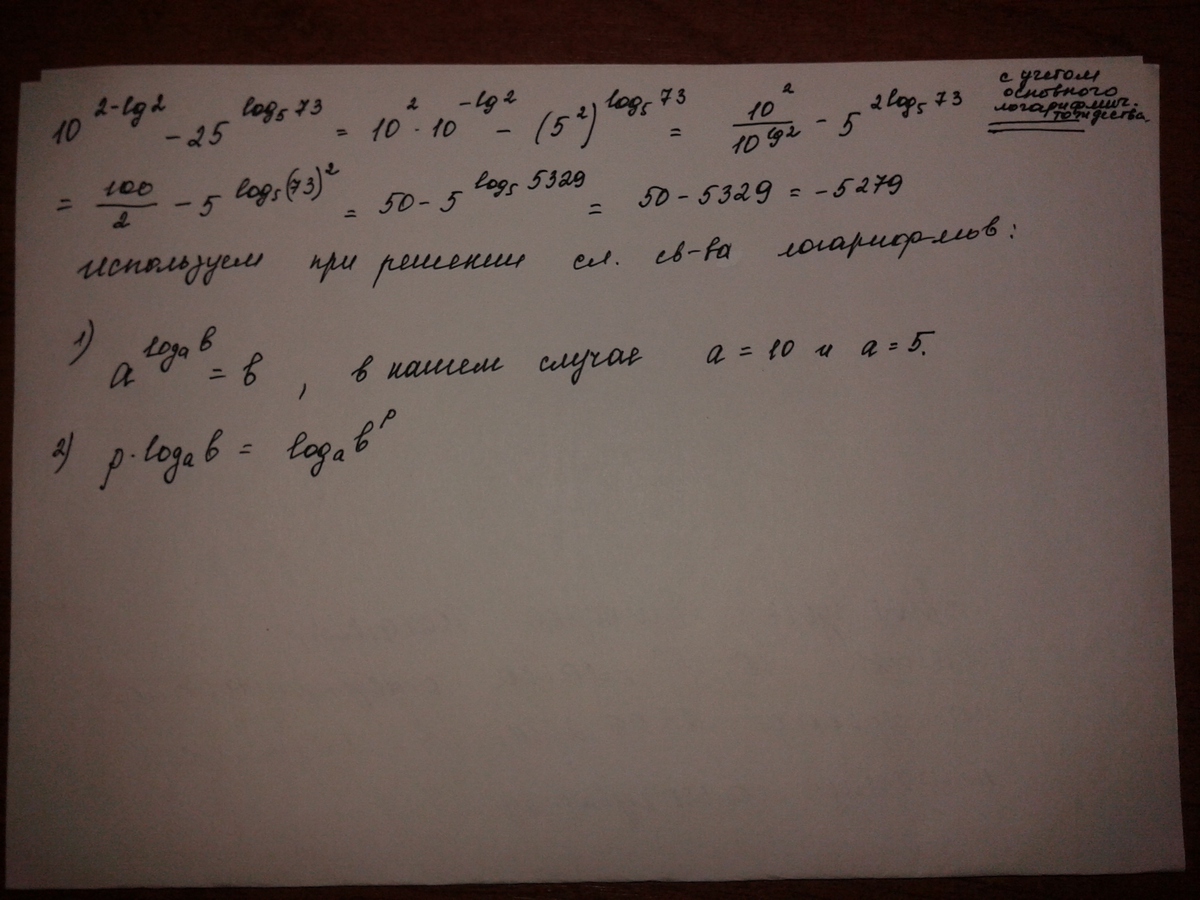 10^{2-lg2} - 25^{log_5 73} = 10^2 · 10^{-lg2} - (5^2)^{log_5 73} = \frac{10^2}{10^{lg2}} - 5^{2log_5 73}
с учетом
основного
логарифмич.
тождества.
= \frac{100}{2} - 5^{log_5(73)^2} = 50 - 5^{log_5 5329} = 50 - 5329 = -5279
используем при решении сл. св-ва логарифмов:
1) a^{log_a b} = b , в нашем случае a = 10 и a = 5.
2) p · log_a b = log_a b^p